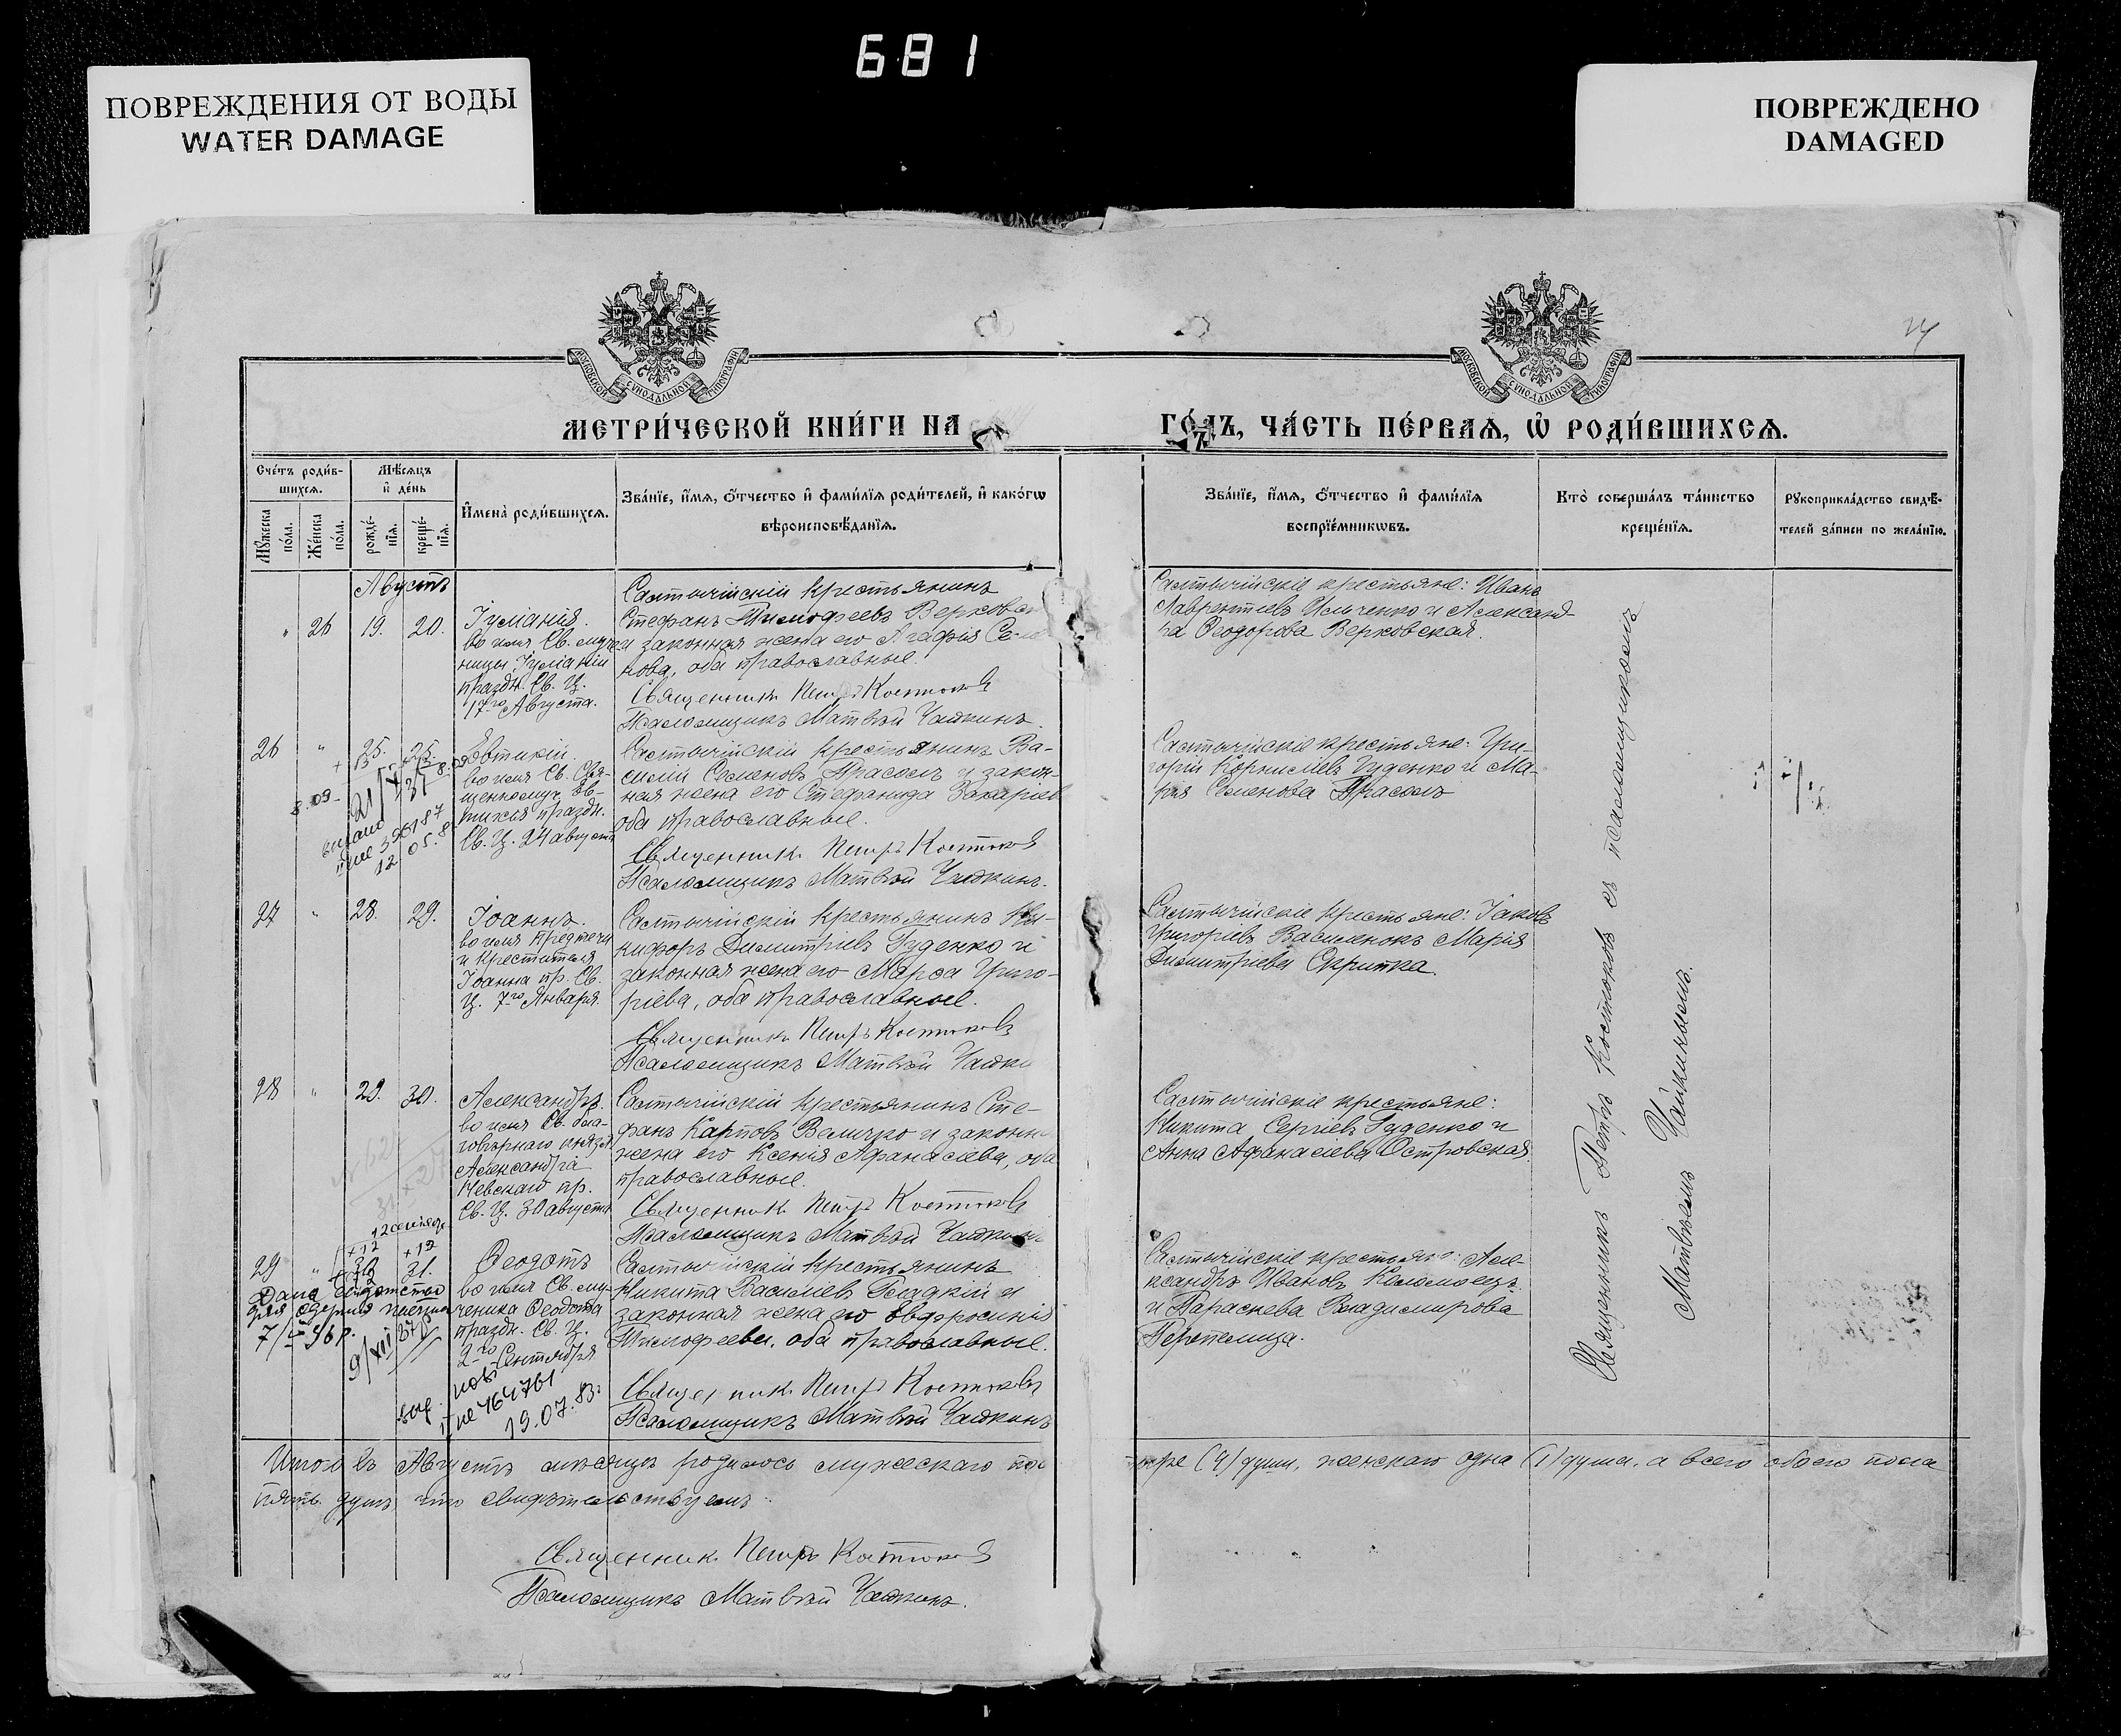 681
ПОВРЕЖДЕНИЯ ОТ ВОДЫ
WATER DAMAGE
ПОВРЕЖДЕНО
DAMAGED
МОСКОВСКОЙ СѴНОДАЛЬНОЙ ТИПОГРАФІИ
МОСКОВСКОЙ СѴНОДАЛЬНОЙ ТИПОГРАФІИ
24
МЕТРИ́ЧЕСКОЙ КНИ́ГИ НА
ГО́ДЪ, ЧА́СТЬ ПЕ́РВАѦ, Ѡ҆ РОДИ́ВШИХСѦ.
Сче́тъ роди́в-
шихсѧ.
Мѣ́сѧцъ
и҆ де́нь
И҆мена̀ роди́вшихсѧ.
Зва́нїе, и҆́мѧ, ѻ҆́тчество и҆ фами́лїѧ роди́телей, и҆ како́гѡ
вѣроисповѣ́данїѧ.
Мꙋ́жеска
по́ла.
Же́нска
по́ла.
рожде́-
нїѧ.
креще́-
нїѧ.
Зва́нїе, и҆́мѧ, ѻ҆́тчество и҆ фами́лїѧ
воспрїе́мникѡвъ.
Кто̀ соверша́лъ та́инство
креще́нїѧ.
Рꙋкоприкла́дство свидѣ́-
телей за́писи по жела́нїю.
Августъ
" 26 19. 20.
Іуліанія.
во имя Св. муче-
ницы Іуліаніи
праздн. Св. Ц.
17го Августа.
Салтычійскій крестьянинъ
Стефанъ Тимофеевъ Верковск
и законная жена его Агафія Семе
нова, оба православные.
Священникъ Петръ Костюковъ
Псаломщикъ Матвѣй Чашкинъ.
Салтычійскіе крестьяне: Иванъ
Лаврентіевъ Ильченко и Александ-
ра Ѳеодорова Верковская.
26 " 25. 25.
Евтихій.
во имя Св. Свя-
щенномуч. Ев-
тихія праздн.
Св. Ц. 24 августа
Салтычійскій крестьянинъ Ва-
силій Семеновъ Прасолъ и закон-
ная жена его Стефанида Захаріев
оба православные.
Священникъ Петръ Костюковъ
Псаломщикъ Матвѣй Чашкинъ.
Салтычійскіе крестьяне: Гри-
горій Корниліевъ Гуденко и Ма-
рія Семенова Прасолъ
27 " 28. 29.
Іоаннъ.
во имя Предтечи
и Крестителя
Іоанна пр. Св.
Ц. 7го Января.
Салтычійскій крестьянинъ Ни-
кифоръ Димитріевъ Гуденко и
законная жена его Марѳа Григо-
ріева, оба православные.
Священникъ Петръ Костюковъ
Псаломщикъ Матвѣй Чашки
Салтычійскіе крестьяне: Іаковъ
Григоріевъ Василенокъ Марія
Димитріева Скрипка.
28 " 29. 30.
Александръ.
во имя Св. бла-
говѣрнаго князя
Александра
Невскаго пр.
Св. Ц. 30 августа
Салтычійскій крестьянинъ Сте-
фанъ Карповъ Величко и законн
жена его Ксенія Афанасіева, оба
православные.
Священникъ Петръ Костюковъ
Псаломщикъ Матвѣй Чашкинъ
Салтычійскіе крестьяне:
Никита Сергіевъ Гуденко и
Анна Афанасіева Островская.
29 " 30 31.
Ѳеодотъ
во имя Св. му-
ченика Ѳеодота
праздн. Св. Ц.
2го Сентября
Салтычійскій крестьянинъ
Никита Василіевъ Гладкій и
законная жена его Евфросинія
Тимофеева, оба православные.
Священникъ Петръ Костюковъ
Псаломщикъ Матвѣй Чашкинъ
Салтычійскіе крестьяне: Але-
ксандръ Ивановъ Коломоецъ
и Параскева Владимирова
Перепелица.
пе 464761
19.07.83.
Священникъ Петръ Костюковъ съ псаломщикомъ
Матвѣемъ Чашкинымъ.
Итого въ Августѣ мѣсяцѣ родилось мужескаго пол
тыре (4) души, женскаго одна (1) душа, а всего обоего пола
пять душъ что свидѣтельствуемъ:
Священникъ Петръ Костюковъ
Псаломщикъ Матвѣй Чашкинъ.